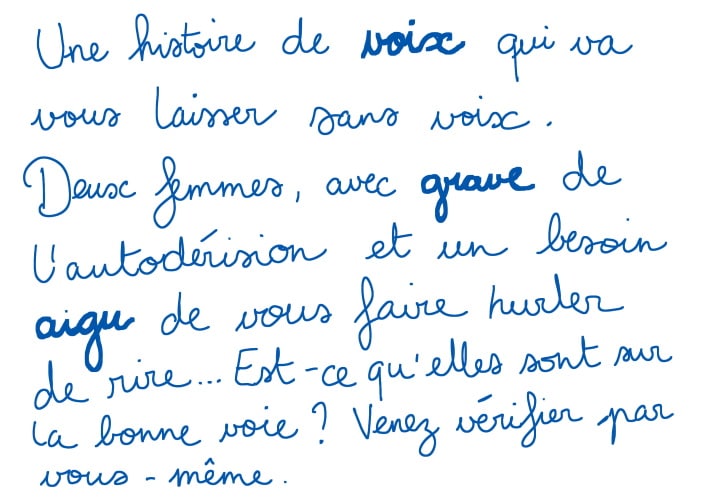 Une histoire de voix qui va
vous laisser sans voix.
Deux femmes, avec grave de
l'autodérision et un besoin
aigu de vous faire hurler
de rire... Est-ce qu'elles sont sur
la bonne voie ? Venez vérifier par
vous-même.